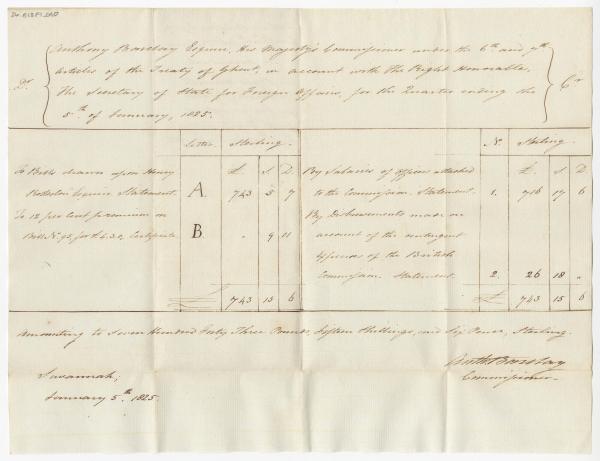 Dr.
Anthony Barclay Esquire, His Majesty's Commissioner under the 6th and 7th
articles of the Treaty of Ghent, in account with The Right Honorable,
The Secretary of State for Foreign Affairs, for the Quarter ending the
5th of January, 1825.
Cr
Letter. Sterling. No. Sterling.
£. S. D. £. S. D.
To Bills drawn upon Henry
Esquire Statement. A. 743 5 7
To 12 per Cent premium on
Bill No. 95, for £4.3.0, Certificate B. " 9 11
743 15 6
By Salaries of Officers attached
to the Commission. Statement. 1. 716 17 6
By Disbursements made on
account of the contingent
Expenses of the British
Commission. Statement. 2. 26 18 "
£ 743 15 6
Amounting to Seven Hundred Forty Three Pounds, Fifteen Shillings, and Six Pence, Sterling.
Anth: Barclay
Commissioner.
Savannah;
January 5th 1825.